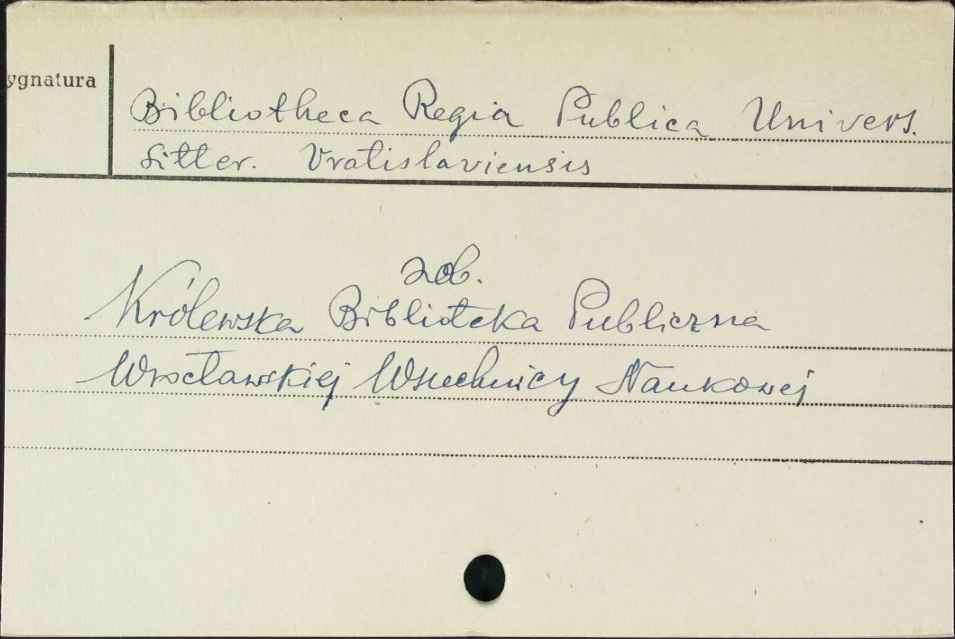 ygnatura
Bibliotheca Regia Publica Univers.
Litter. Vratislaviensis
zob.
Królewska Biblioteka Publiczna
Wrocławskiej Wszechnicy Naukowej